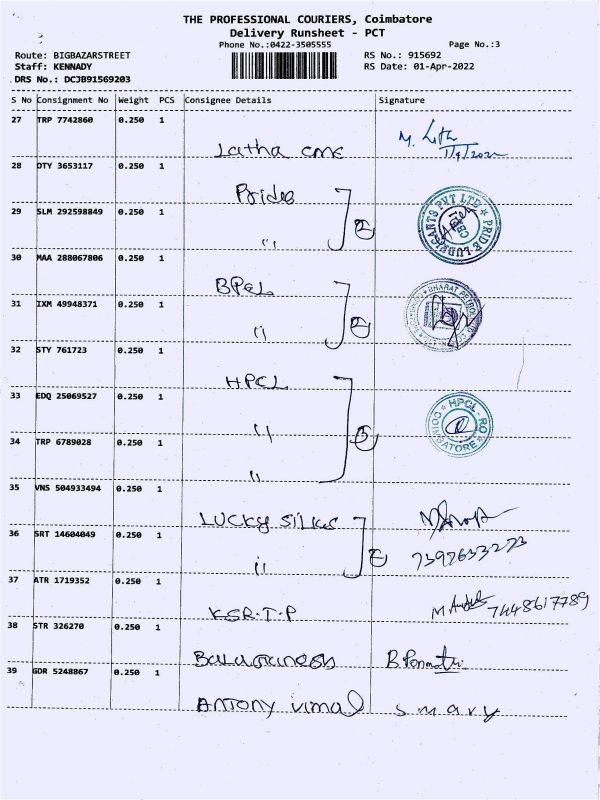 THE PROFESSIONAL COURIERS, Coimbatore
Delivery Runsheet - PCT
Phone No.:0422-3505555
Page No.:3
Route: BIGBAZARSTREET
RS No.: 915692
Staff: KENNADY
RS Date: 01-Apr-2022
DRS No.: DCJB91569203
S No Consignment No Weight PCS Consignee Details Signature
27 TRP 7742860 0.250 1
Latha cmc
28 DTY 3653117 0.250 1
Prides
29 SLM 292598849 0.250 1
"
2
PRIDE LUBRICANTS PVT LTD
30 MAA 288067806 0.250 1
BPCL
31 IXM 49948371 0.250 1
"
2
32 STY 761723 0.250 1
HPCL
33 EDQ 25069527 0.250 1
"
3
HPCL - RO
COIMBATORE
34 TRP 6789028 0.250 1
"
35 VNS 504933494 0.250 1
LUCKY SILKS
36 SRT 14604049 0.250 1
"
2
7397633273
37 ATR 1719352 0.250 1
KSR.T.P
7448617789
38 STR 326270 0.250 1
39 GDR 5248867 0.250 1
Antony vimal s mary